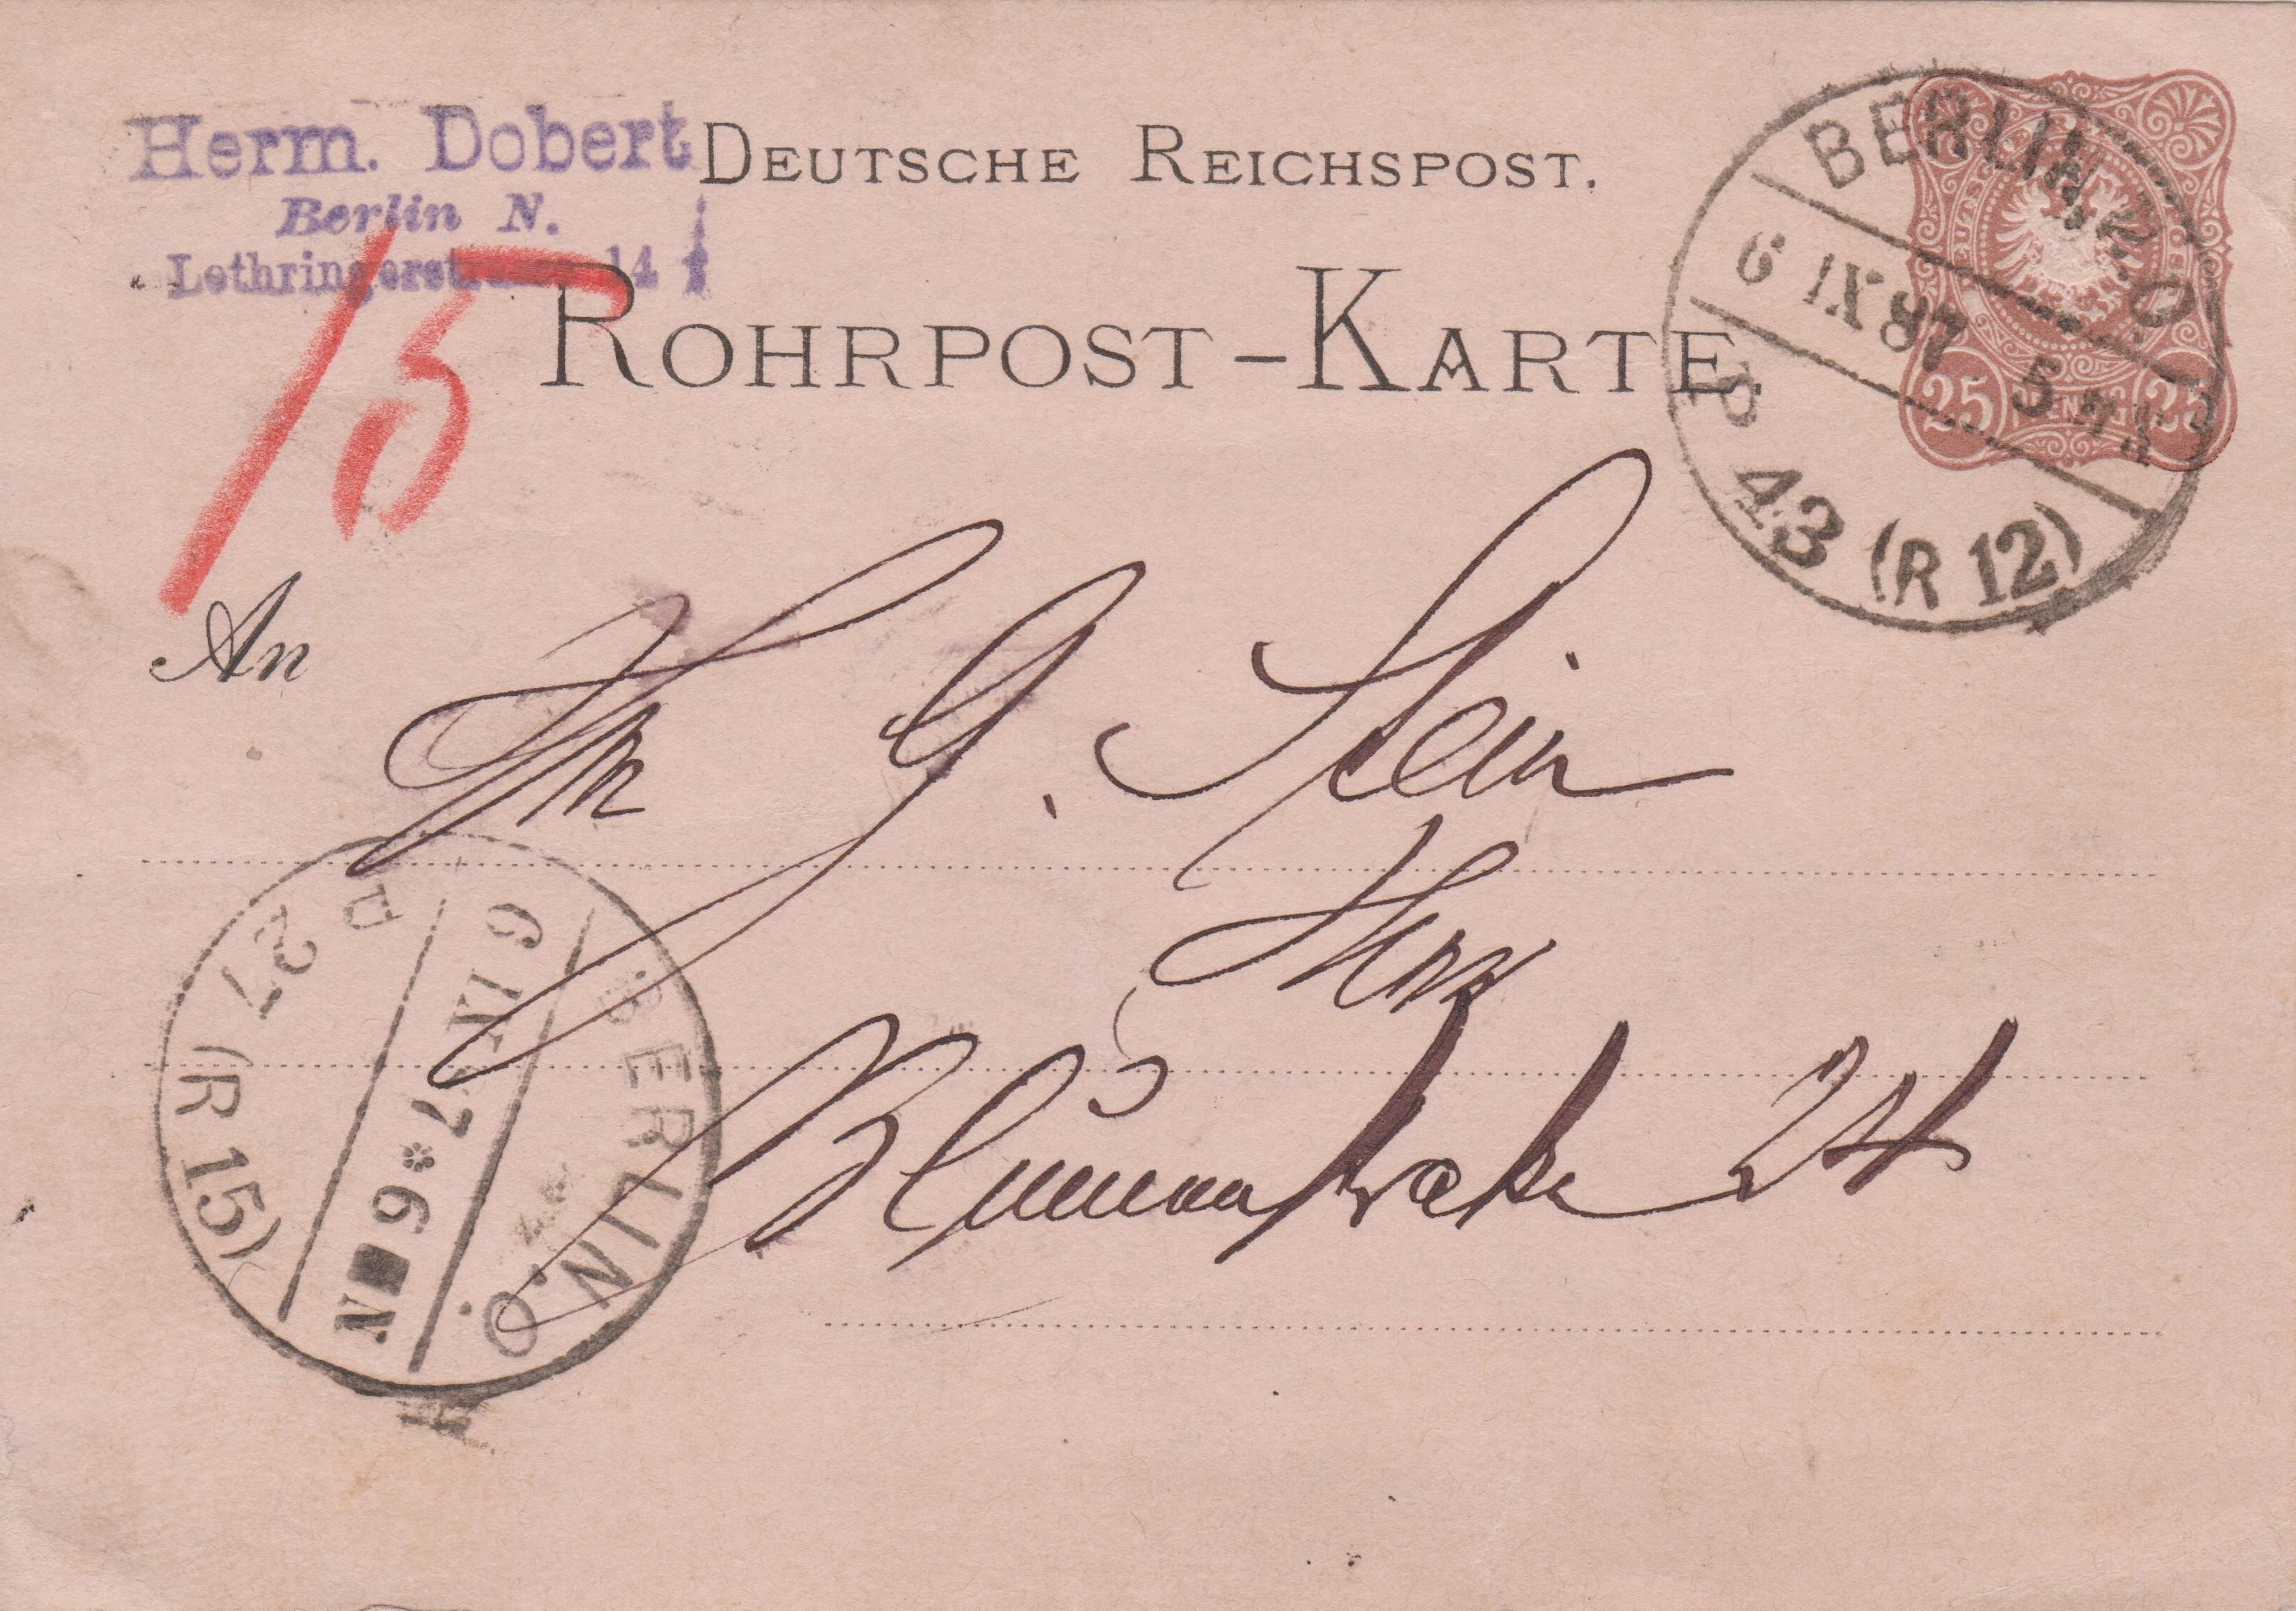 Herm. Dobert
Berlin N.
Lothringerstrasse 14
DEUTSCHE REICHSPOST.
ROHRPOST-KARTE.
BERLIN, N.O
6 IX 87 5
P 43 (R 12)
25 PFENNIG 25
15
An
G. Stein
Hier
Blumenstrasse 24
BERLIN. O
6 IX 87 * 6 N.
P 27 (R 15)